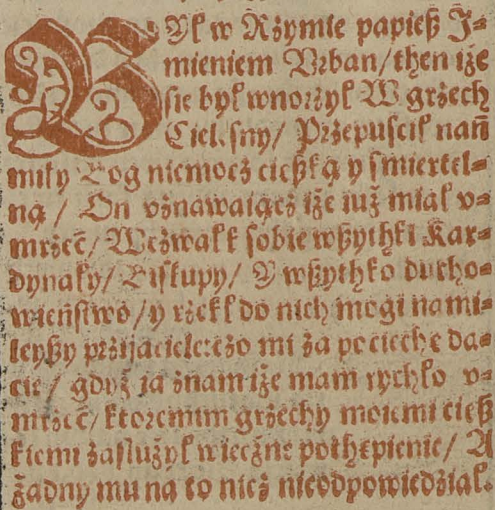 BYł w Rzymie papieß J⸗
mieniem Vrban/then iże
sie był wnorzył W grzech
Cielesny/ Przepuscił nań
miły Bog niemocz cieſzką y smiertel⸗
ną / On vznawaiącz iże iuż miał v⸗
mrzeć/ Wezwałł sobie wßythki Kar⸗
dynały/ Biskupy/ Y wßythko ducho⸗
wieństwo/ y rzekł do nich mogi nami⸗
leyßy przijaciele: czo mi za pociechę da⸗
cie / gdyż ia znam iże mam rychło v⸗
mrzeć/ ktoremim grzechy moiemi cięß
kiemi zasłużył wieczne pothępienie/ A
żadny mu na to nicz nieodpowiedział.